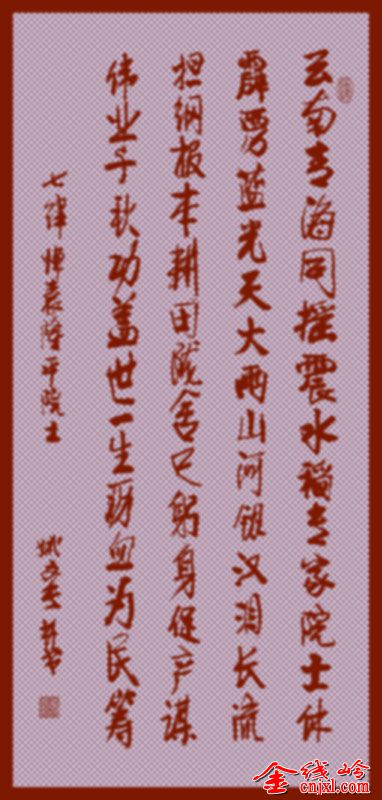 云南青海同摇震水稻专家院士休
霹雳蓝光天大雨山河银汉泪长流
担纲报本耕田陇舍己躬身促产谋
伟业千秋功盖世一生血为民筹
七律悼袁隆平院士
金线岭
cnjxl.com